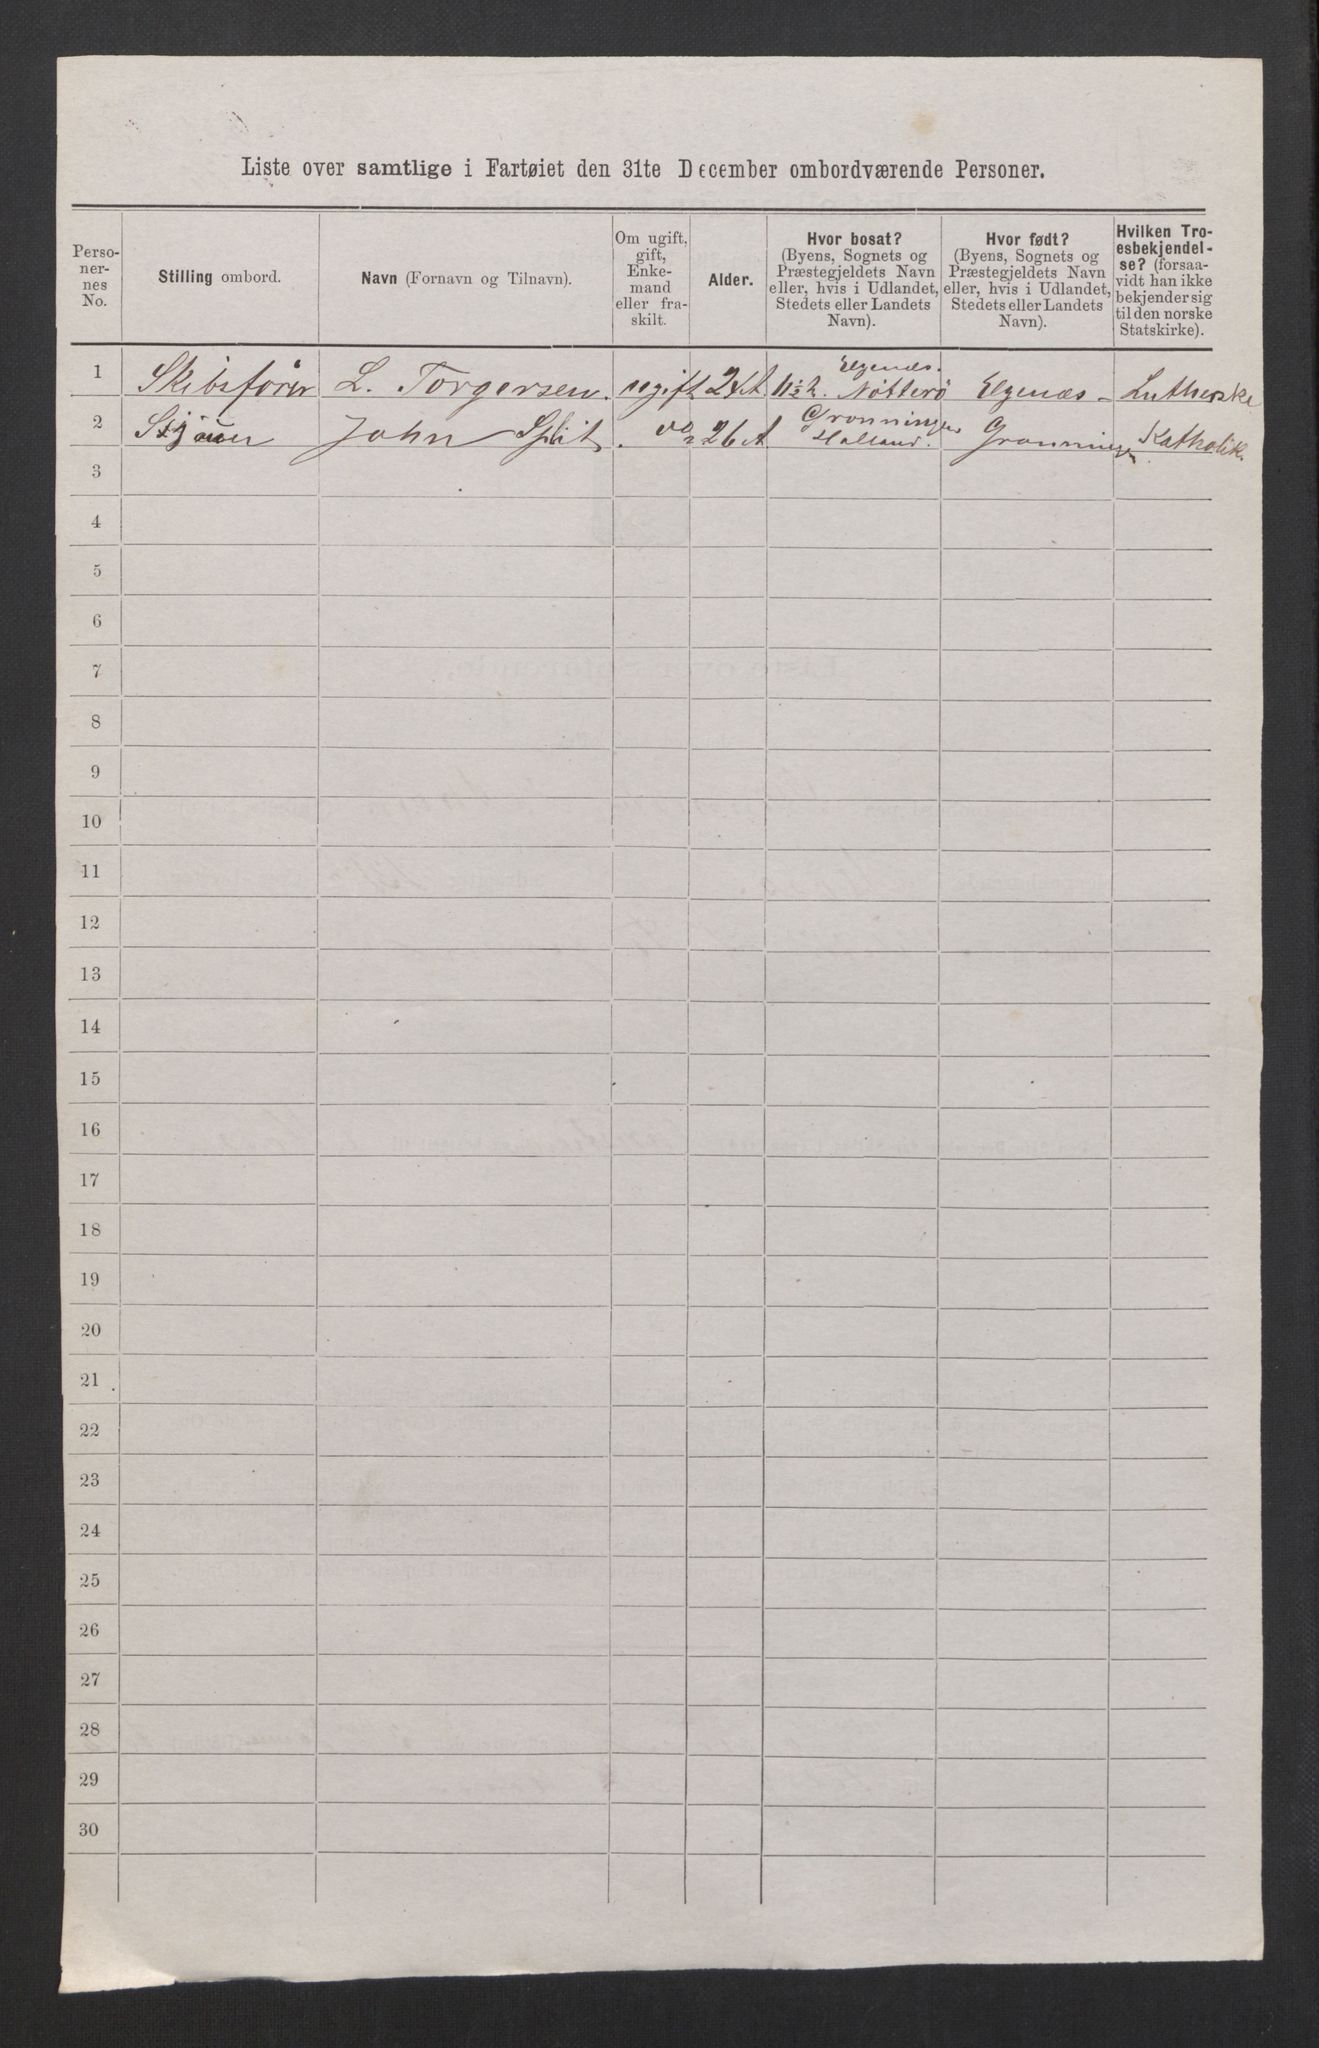 Liste over samtlige i Fartøiet den 31te December ombordværende Personer.
Perso-
ner-
nes
No.
Stilling ombord.
Navn (Fornavn og Tilnavn).
Om ugift,
gift,
Enke-
mand
eller fra-
skilt.
Alder.
Hvor bosat?
(Byens, Sognets og
Præstegjeldets Navn
eller, hvis i Udlandet,
Stedets eller Landets
Navn).
Hvor født?
(Byens, Sognets og
Præstegjeldets Navn
eller, hvis i Udlandet,
Stedets eller Landets
Navn).
Hvilken Tro-
esbekjendel-
se? (forsaa-
vidt han ikke
bekjender sig
til den norske
Statskirke).
1 Skibsfører L. Torgersen. ugift Elgenæs. Nøtterö Elgenæs - Lutherske
2 John do 26 A Gronningen Holland. Gronningen Katholik.
3
4
5
6
7
8
9
10
11
12
13
14
15
16
17
18
19
20
21
22
23
24
25
26
27
28
29
30